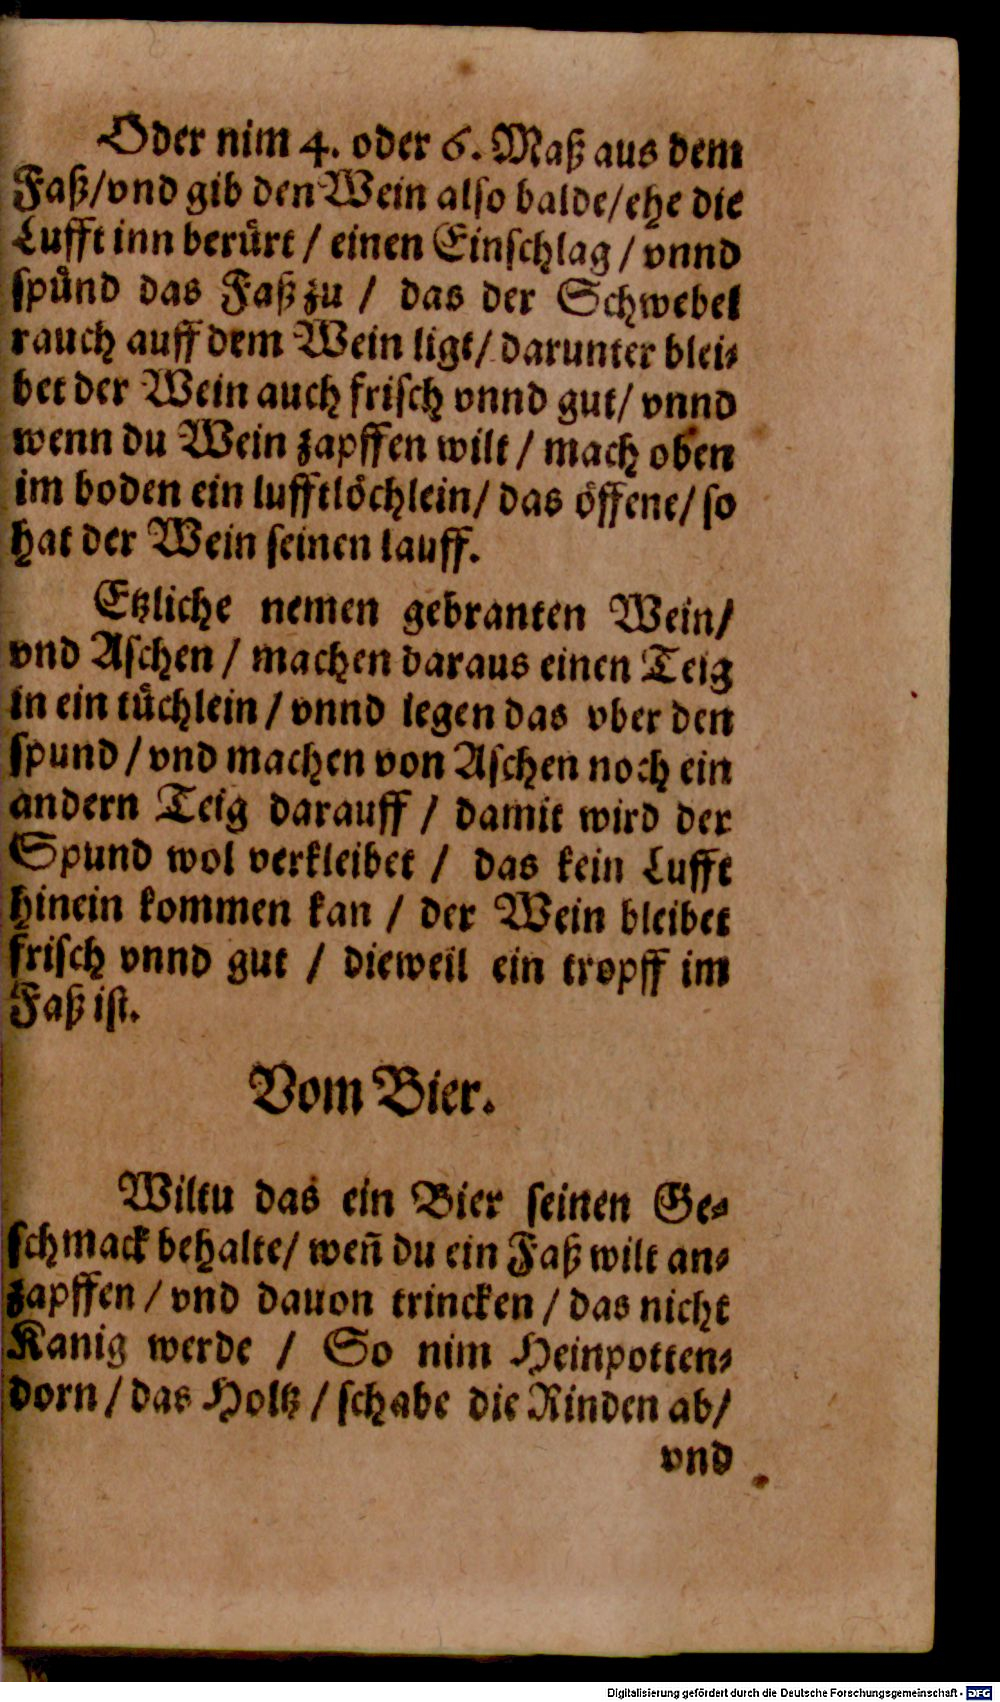 Oder nim 4. oder 6. Maß aus dem
Faß/vnd gib den Wein also balde/ehe die
Lufft inn berürt / einen Einschlag / vnnd
spünd das Faß zu / das der Schwebel
rauch auff dem Wein ligt/ darunter blei-
bet der Wein auch frisch vnnd gut/ vnnd
wenn du Wein zapffen wilt / mach oben
im boden ein lufftlöchlein/ das öffene/ so
hat der Wein seinen lauff.
Etzliche nemen gebranten Wein/
vnd Aschen / machen daraus einen Teig
in ein tüchlein / vnnd legen das vber den
spund / vnd machen von Aschen noch ein
andern Teig darauff / damit wird der
Spund wol verkleibet / das kein Lufft
hinein kommen kan / der Wein bleibet
frisch vnnd gut / dieweil ein tropff im
Faß ist.
Vom Bier.
Wiltu das ein Bier seinen Ge-
schmack behalte/ weñ du ein Faß wilt an-
zapffen / vnd dauon trincken / das nicht
Kanig werde / So nim Heinpotten-
dorn / das Holtz / schabe die Rinden ab/
vnd
Digitalisierung gefördert durch die Deutsche Forschungsgemeinschaft - DFG